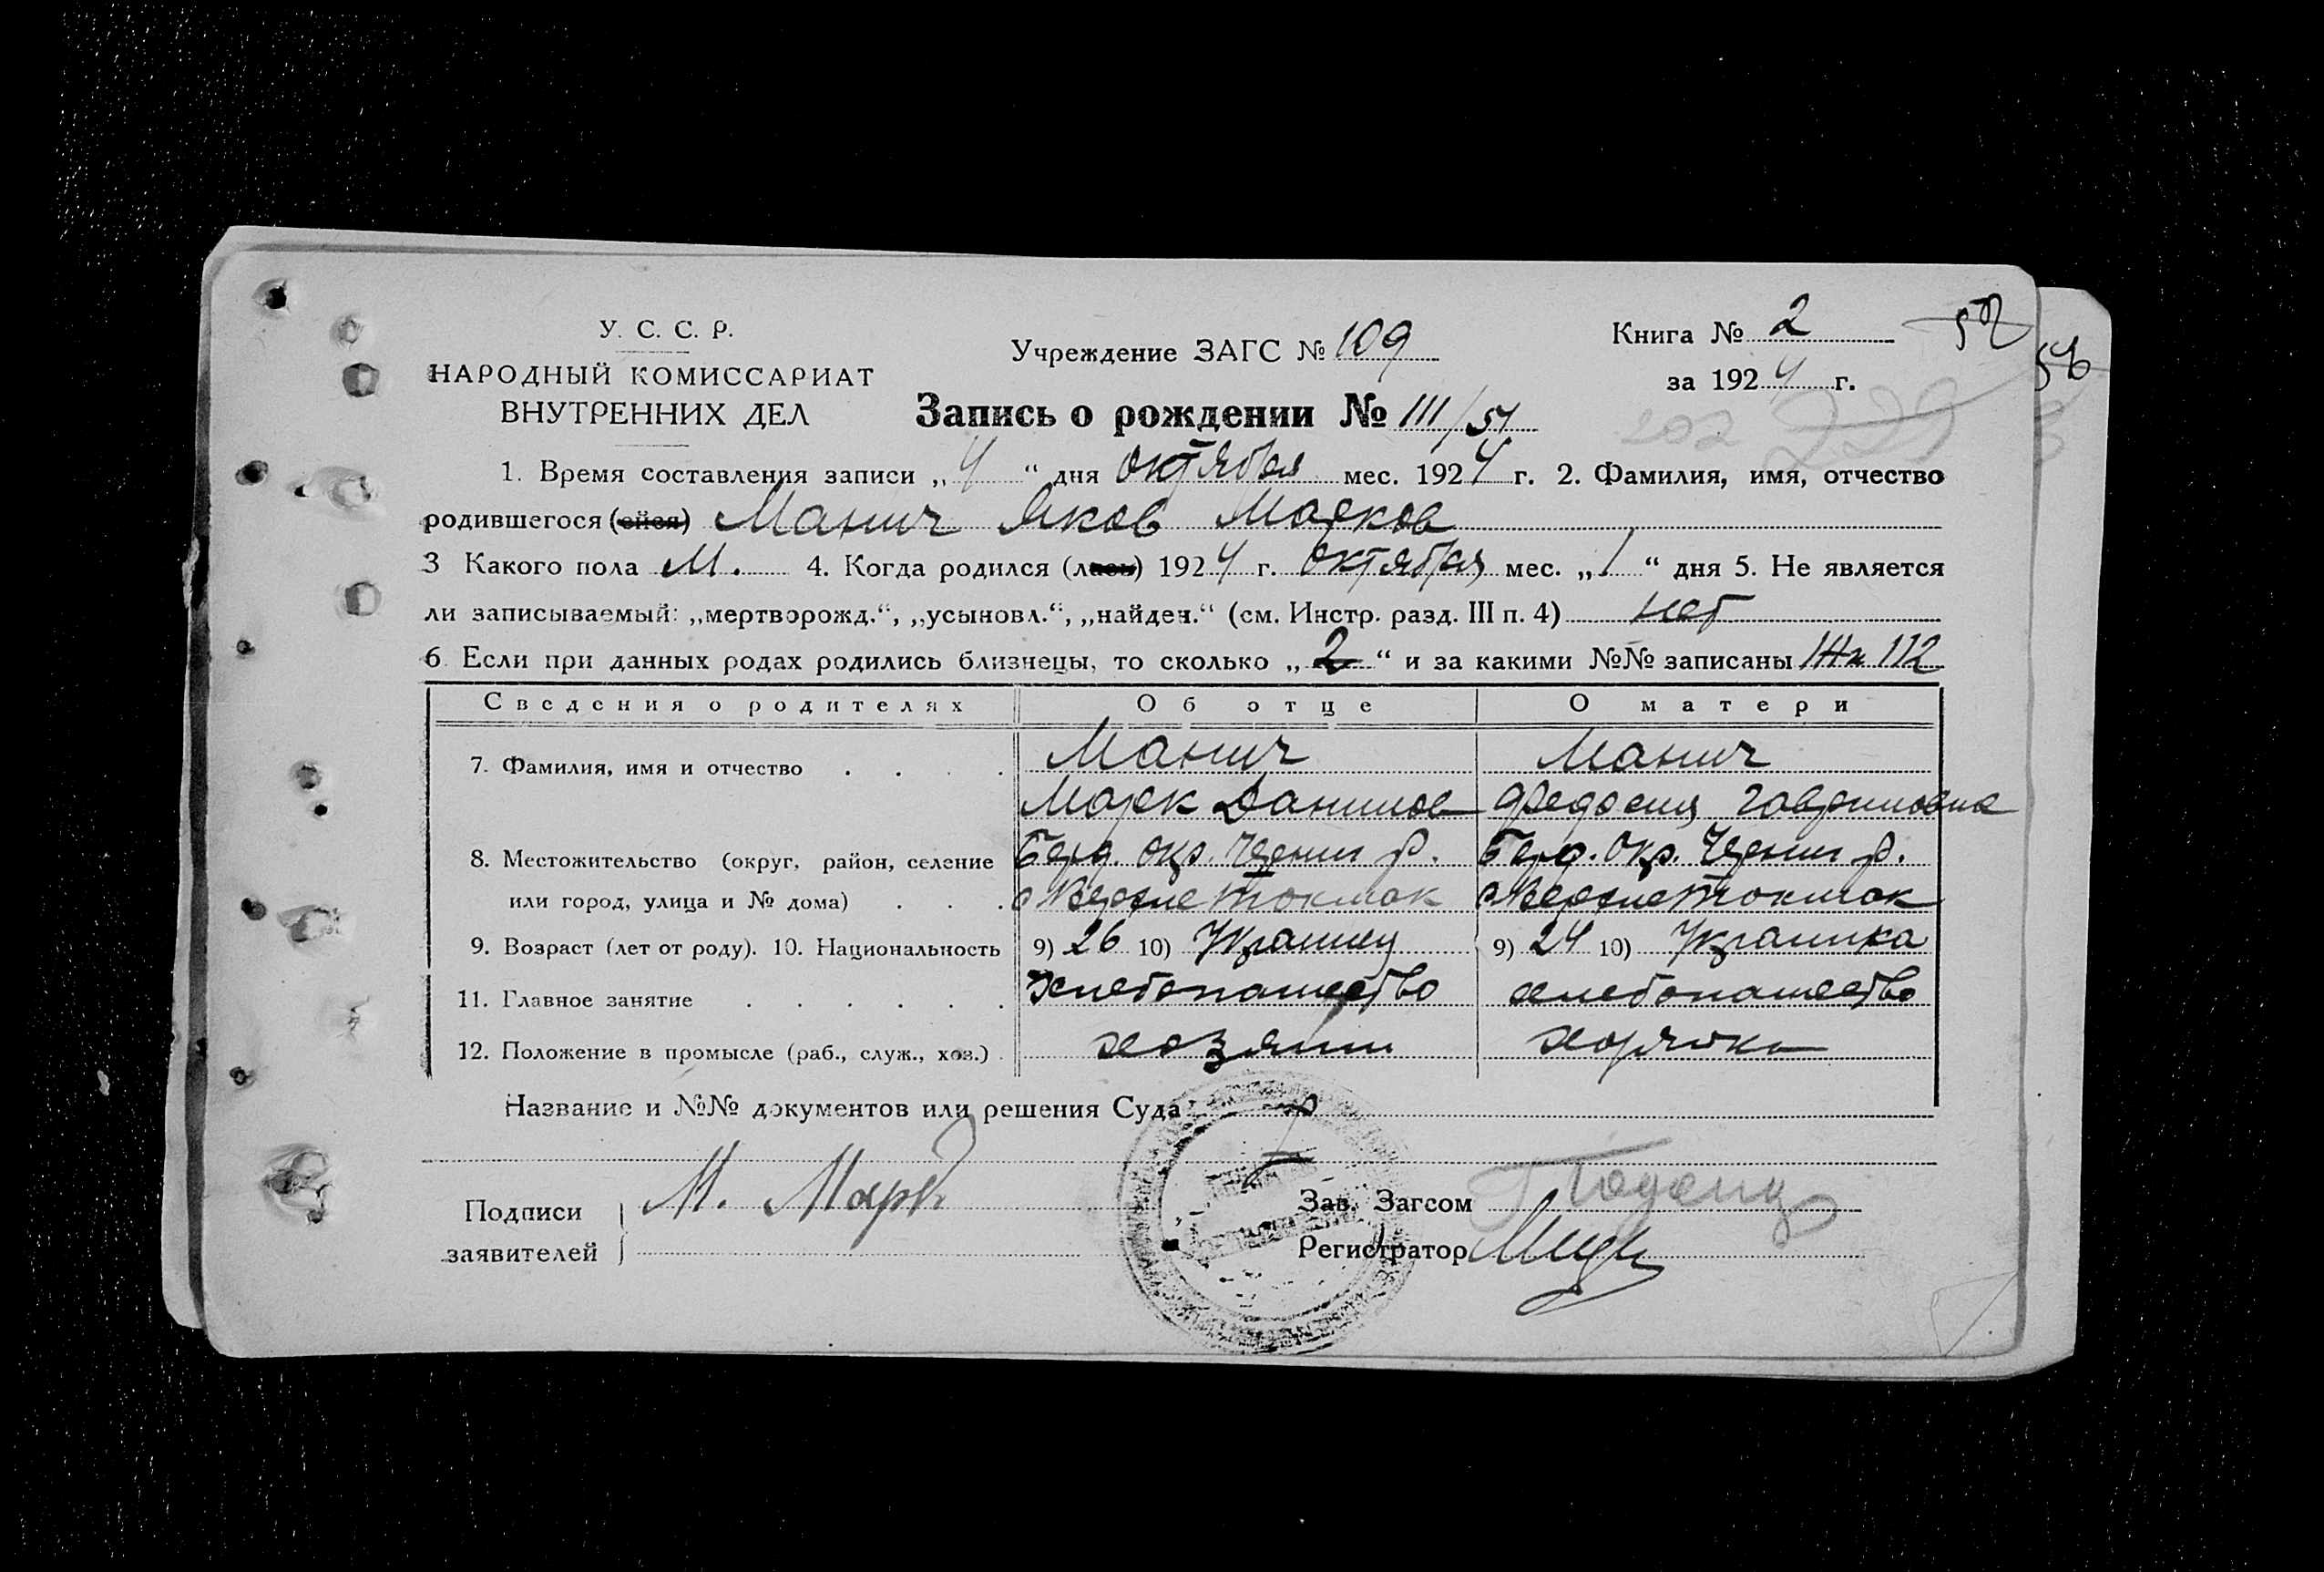 У. С. С. Р.
НАРОДНЫЙ КОМИССАРИАТ
ВНУТРЕННИХ ДЕЛ
Учреждение ЗАГС № 109
Книга № 2
за 1924 г.
52
Запись о рождении № 111/51
1. Время составления записи „4“ дня октября мес. 1924 г. 2. Фамилия, имя, отчество
родившегося (ейся) Манич Яков Марков
3 Какого пола М. 4. Когда родился (лась) 1924 г. октября мес. „1“ дня 5. Не является
ли записываемый: „мертворожд.“, „усыновл.“, „найден.“ (см. Инстр. разд. III п. 4) нет
6. Если при данных родах родились близнецы, то сколько „2“ и за какими №№ записаны 112
Сведения о родителях Об отце О матери
7. Фамилия, имя и отчество . . . . Манич Манич
Марк Данилов Федосия Гавриловна
8. Местожительство (округ, район, селение Берд. окр. Черниг р. Берд. Окр. Черниг р.
или город, улица и № дома) . . . с Верхне Токмак с Верхне Токмак
9. Возраст (лет от роду). 10. Национальность 9) 26 10) Украинец 9) 24 10) Украинка
11. Главное занятие . . . . . . Хлебопашество хлебопашество
12. Положение в промысле (раб., служ., хоз.) . хозяин
Название и №№ документов или решения Суда:
Подписи
заявителей
М. Мар
Зав. Загсом
Регистратор